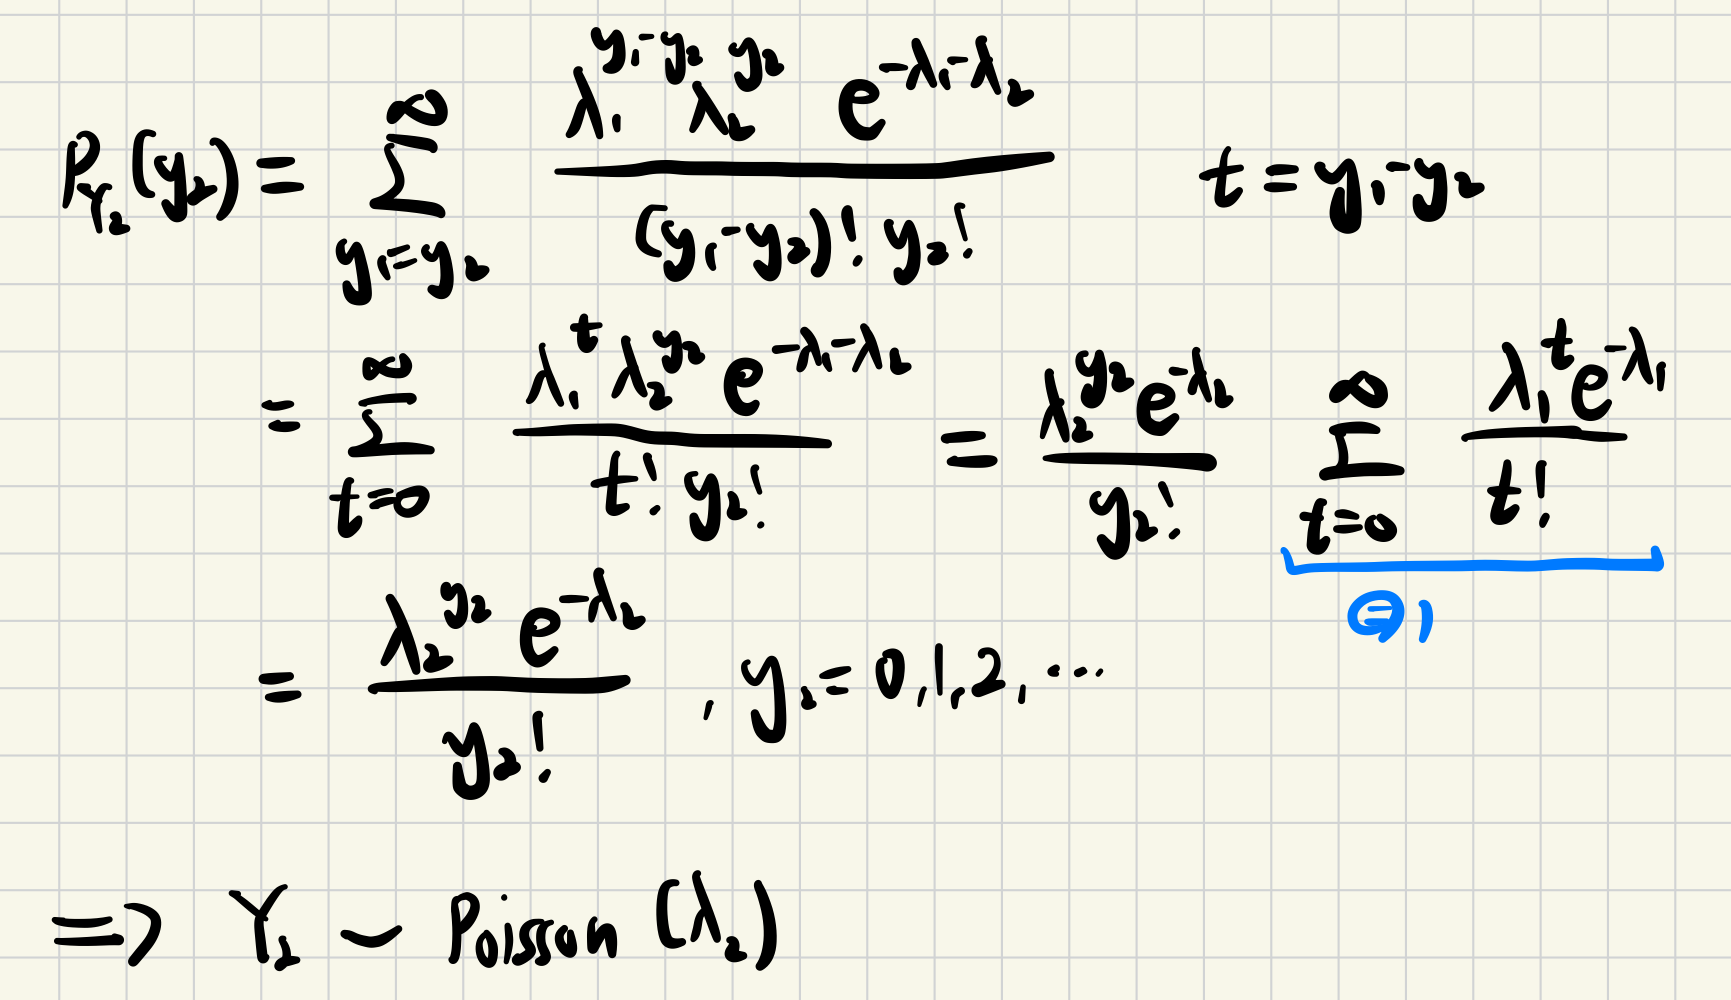 P_{Y_2}(y_2) = \sum_{y_1=y_2}^{\infty} \frac{\lambda_1^{y_1-y_2} \lambda_2^{y_2} e^{-\lambda_1-\lambda_2}}{(y_1-y_2)! y_2!} t = y_1-y_2
= \sum_{t=0}^{\infty} \frac{\lambda_1^t \lambda_2^{y_2} e^{-\lambda_1-\lambda_2}}{t! y_2!} = \frac{\lambda_2^{y_2} e^{-\lambda_2}}{y_2!} \sum_{t=0}^{\infty} \frac{\lambda_1^t e^{-\lambda_1}}{t!}
= 1
= \frac{\lambda_2^{y_2} e^{-\lambda_2}}{y_2!} , y_2 = 0,1,2,...
=> Y_2 ~ Poisson (λ_2)